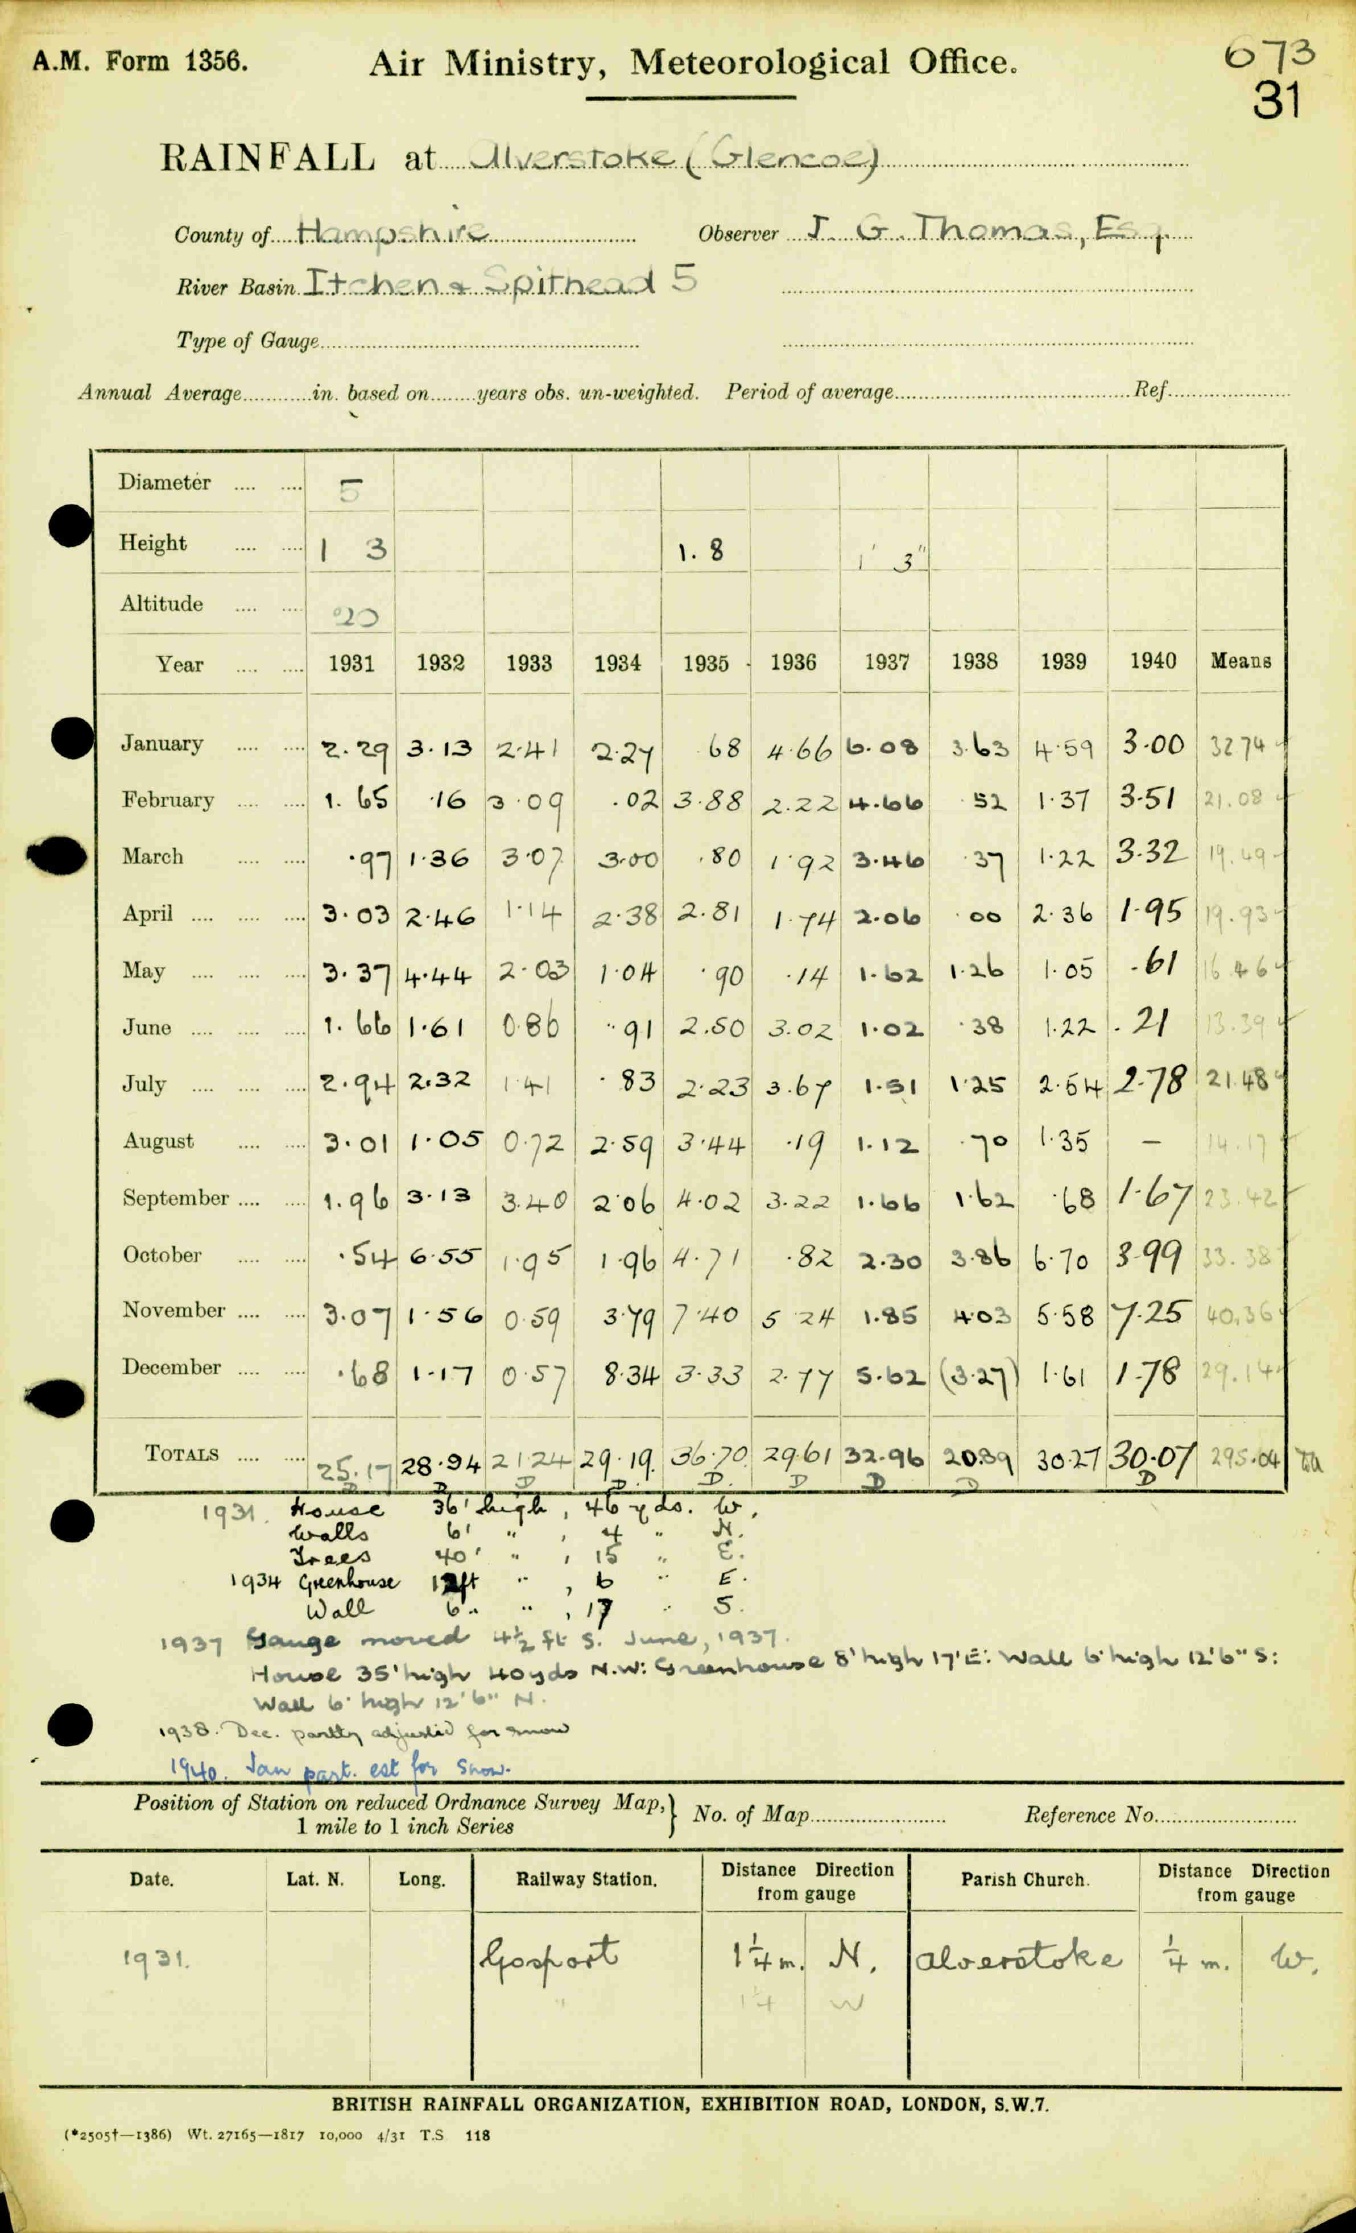 A.M. Form 1356. Air Ministry, Meteorological Office. 673
31
RAINFALL at Alverstoke (Glencoe)
County of Hampshire Observer J. G. Thomas, Esq.
River Basin Itchen & Spithead 5
Type of Gauge
Annual Average in. based on years obs. un-weighted. Period of average Ref.
Diameter 5
Height 1 3 1.8 1' 3"
Altitude 20
Year 1931 1932 1933 1934 1935 1936 1937 1938 1939 1940 Means
January 2.29 3.13 2.41 2.27 .68 4.66 6.08 3.63 4.59 3.00 32.74
February 1.65 .16 3.09 .02 3.88 2.22 4.66 .52 1.37 3.51 21.08
March .97 1.36 3.07 3.00 .80 1.92 3.46 .37 1.22 3.32 19.49
April 3.03 2.46 1.14 2.38 2.81 1.74 2.06 .00 2.36 1.95 19.93
May 3.37 4.44 2.03 1.04 .90 .14 1.62 1.26 1.05 .61 16.46
June 1.66 1.61 0.86 .91 2.50 3.02 1.02 .38 1.22 .21 13.39
July 2.94 2.32 1.41 .83 2.23 3.67 1.51 1.25 2.54 2.78 21.48
August 3.01 1.05 0.72 2.59 3.44 .19 1.12 .70 1.35 – 14.17
September 1.96 3.13 3.40 2.06 4.02 3.22 1.66 1.62 .68 1.67 23.42
October .54 6.55 1.95 1.96 4.71 .82 2.30 3.86 6.70 3.99 33.38
November 3.07 1.56 0.59 3.79 7.40 5.24 1.85 4.03 5.58 7.25 40.36
December .68 1.17 0.57 8.34 3.33 2.77 5.62 (3.27) 1.61 1.78 29.14
TOTALS 25.17 28.94 21.24 29.19 36.70 29.61 32.96 20.89 30.27 30.07 295.04
D D D D D D D D D
1931. House 36' high, 46 yds. W.
Walls 6' " , 4 " N.
Trees 40' " , 15 " E.
1934 Greenhouse 12ft " , 6 " E.
Wall 6 " " , 17 " S.
1937 Gauge moved 4½ ft S. June, 1937.
House 35' high 40yds N.W: Greenhouse 8' high 17' E: Wall 6' high 12'6" S:
Wall 6' high 12'6" N.
1938. Dec. partly adjusted for snow
1940. Jan part. est for snow.
Position of Station on reduced Ordnance Survey Map, 1 mile to 1 inch Series } No. of Map Reference No.
Date. Lat. N. Long. Railway Station. Distance Direction from gauge Parish Church. Distance Direction from gauge
1931. Gosport 1¼ m. N. Alverstoke ¼ m. W.
" 1¼ W
BRITISH RAINFALL ORGANIZATION, EXHIBITION ROAD, LONDON, S.W.7.
(*2505†—1386) Wt. 27165—1817 10,000 4/31 T.S 118